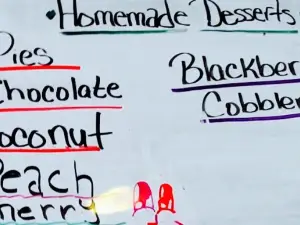 • Homemade Desserts
Pies
Chocolate
Coconut
Peach
Cherry
Blackber
Cobbler